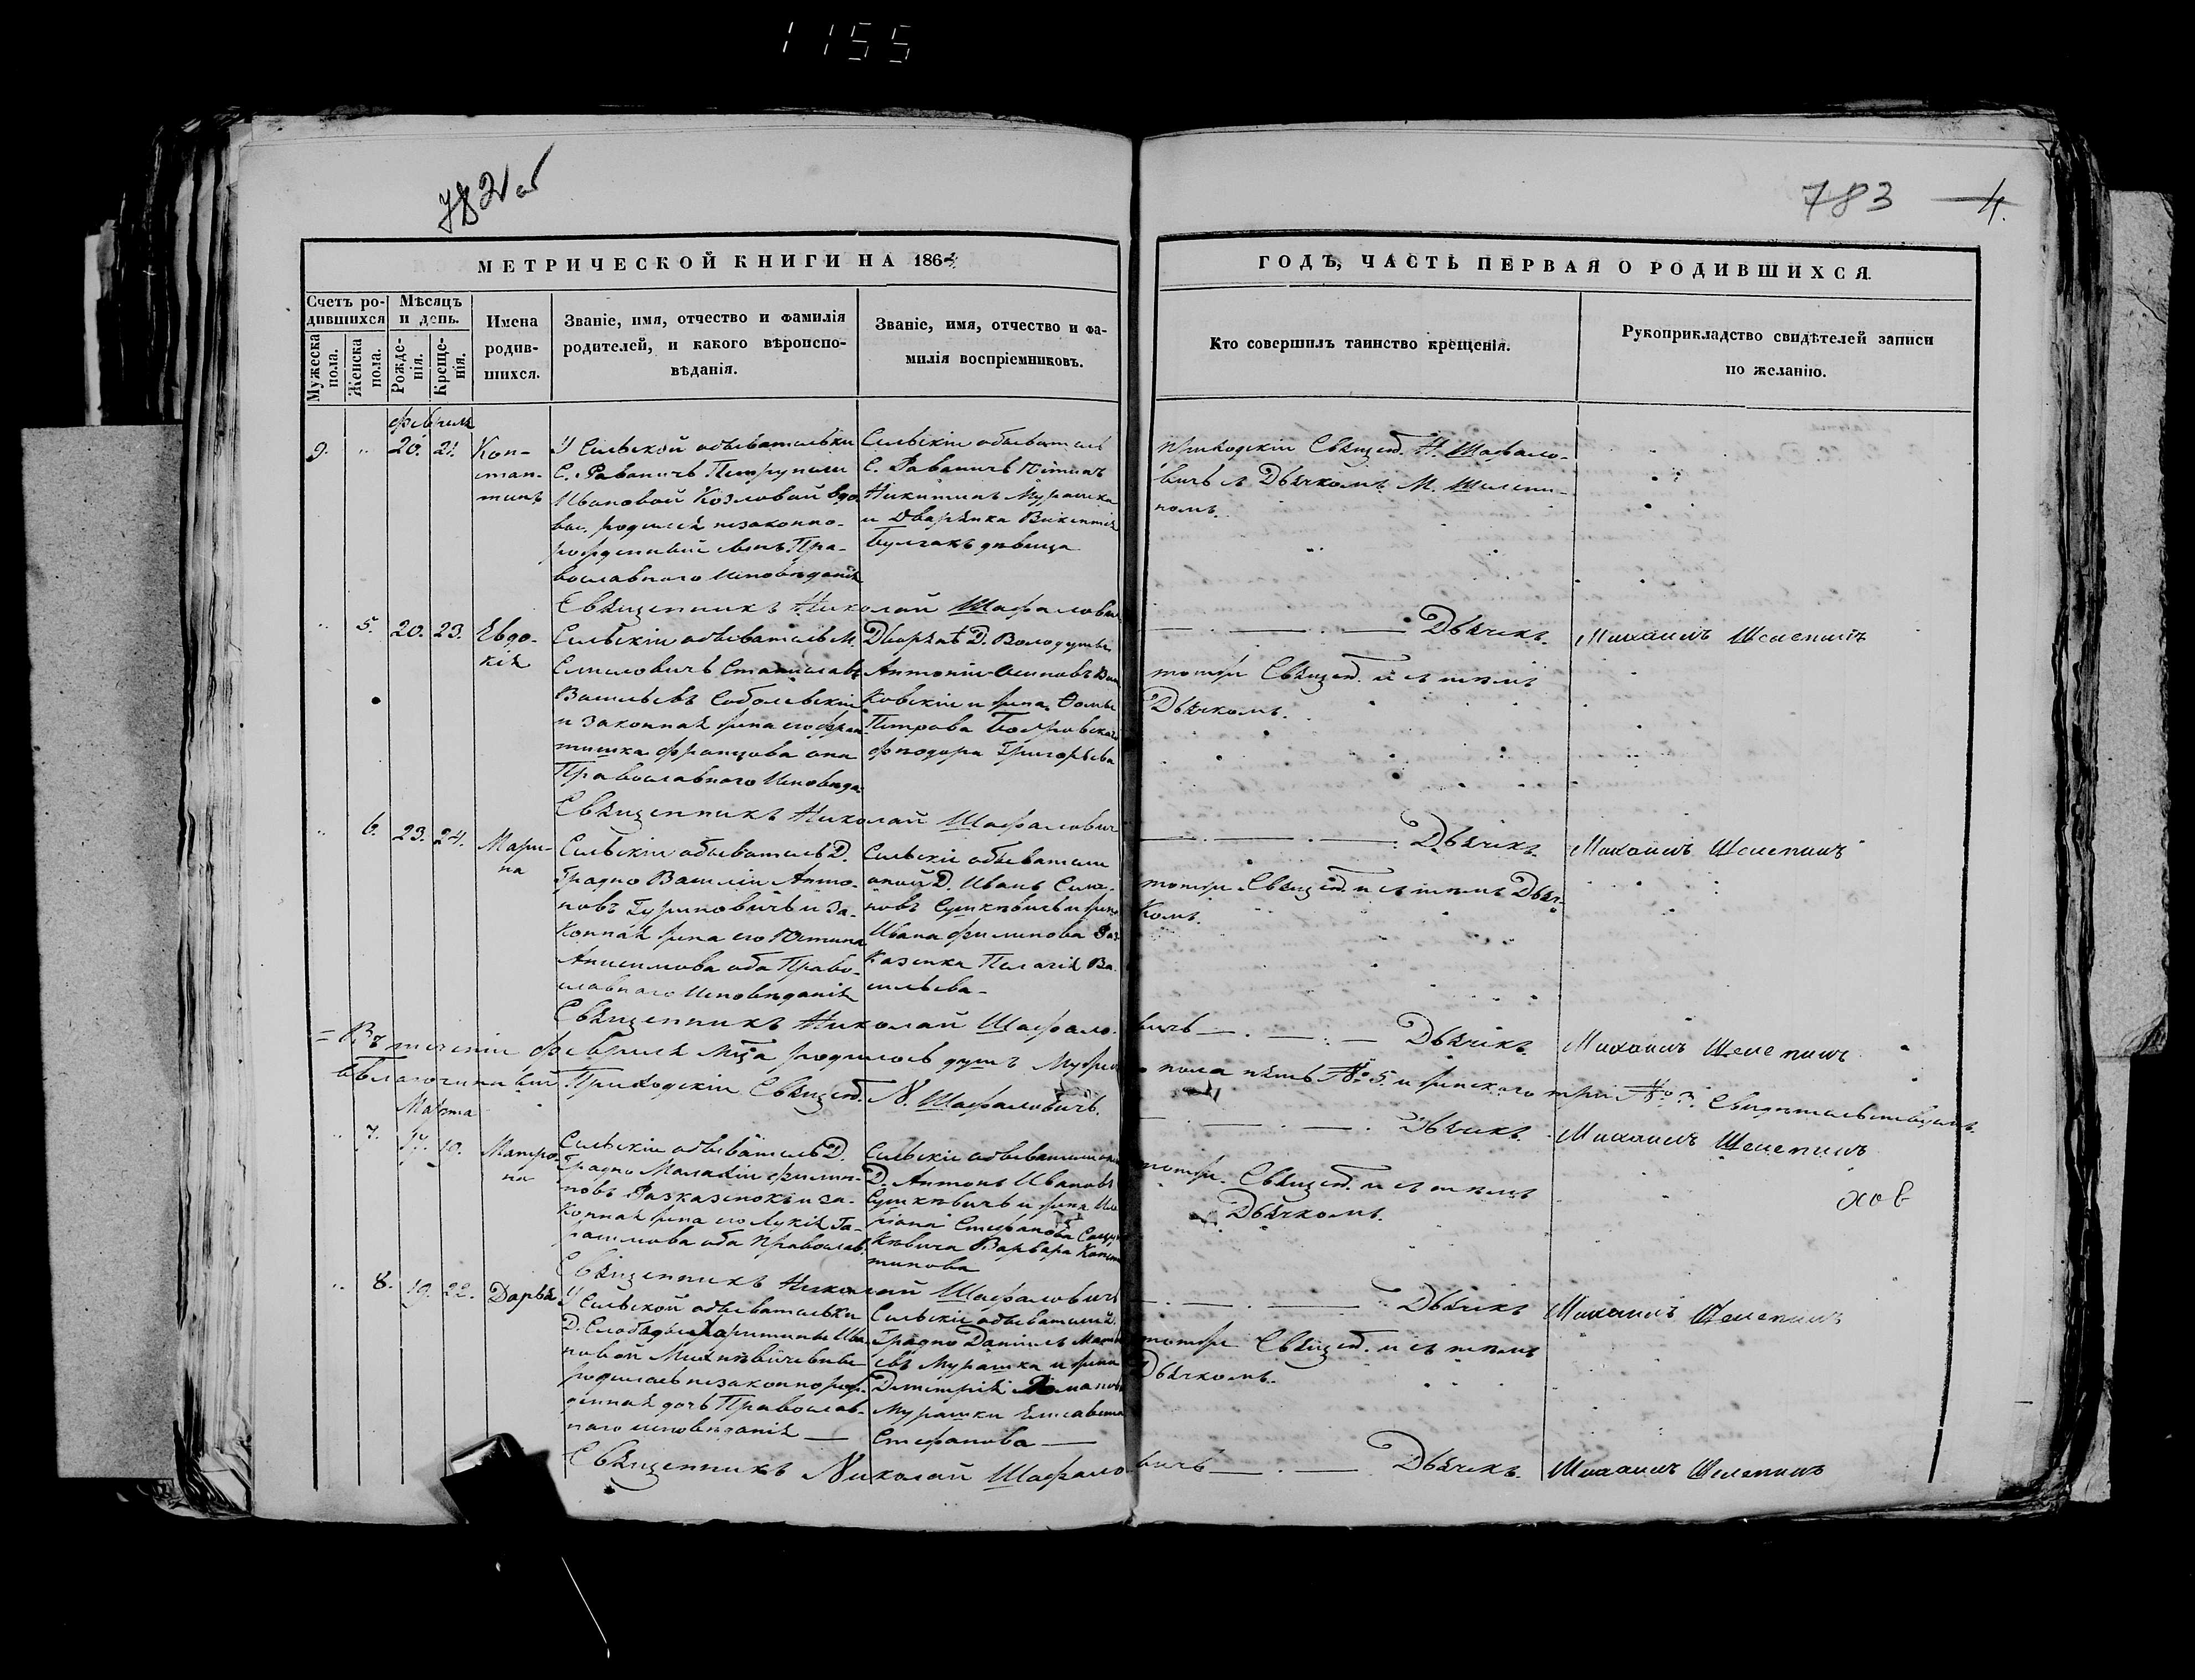 1155
782 об
783 4.
МЕТРИЧЕСКОЙ КНИГИ НА 1864
ГОДЪ, ЧАСТЬ ПЕРВАЯ О РОДИВШИХСЯ.
Счетъ ро-
дившихся
Мужеска пола.
Женска пола.
Мѣсяцъ
и день.
Рожде-
нія.
Креще-
нія.
Имена
родив-
шихся.
Званіе, имя, отчество и фамилія
родителей, и какого вѣроиспо-
вѣданія.
Званіе, имя, отчество и фа-
милія воспріемниковъ.
Кто совершилъ таинство крещенія.
Рукоприкладство свидѣтелей записи
по желанію.
февраля
9. " 20. 21. Кон-
стан-
тинъ
У Сельской обывательки
С. Раваничъ Петрунели
Ивановой Козловой вдо-
вы, родился незаконно-
рожденный сынъ. Пра-
вославнаго исповѣданія
Сельскіи обыватель
С. Раваничъ Юстинъ
Никитинъ Мурашка
и Дворянка Викентія
Булгакъ дѣвица
Приходскіи Священ. Н. Шафало-
вичъ съ Дьячкомъ М. Шелепи-
номъ.
Священникъ Николай Шафалович
Дьячекъ Михаилъ Шелепинъ
" 5. 20. 23. Евдо-
кія
Сельскіи обыватель М.
Смиловичъ Станиславъ
Васильевъ Соболевскіи
и законная жена его Фран
тишка Францова она
Православнаго Исповѣда-
Дворянъ Д. Володуты
Антоніи Осиповъ
ковскіи и жена Фомы
Петрова
Феодора Григорьева
тотже Священ. и съ тѣмъ
Дьячкомъ.
Священникъ Николай Шафалович
Дьячекъ Михаилъ Шелепинъ
" 6. 23. 24. Мари-
на
Сельскіи обыватель Д.
Градно Василіи Анто-
новъ Гуриновичъ и за-
конная жена его Юстина
Анисимова оба Право-
славнаго Исповѣданія
Сельскіе обыватели
оной Д. Иванъ Сила-
новъ Сушкѣвичъ и жена
Ивана Филипова Раз
казенка Пелагія Ва-
сильева
тотже Священ. и съ тѣмъ Дьяч-
комъ.
Священникъ Николай Шафало-
вичъ Дьячекъ Михаилъ Шелепинъ
Въ теченіи Февраля мца родилось душъ Мужеск
пола пять № 5. и женскаго три № 3. Свидѣтельствуемъ
Приходскіи Священ. Н. Шафаловичъ.
Дьячекъ Михаилъ Шелепинъ
Марта
" 7. 17. 19. Матро
на
Сельскіи обыватель Д.
Градно Малахіи Филип-
повъ Разказенокъ и за-
конная жена его Лукія Га-
расимова оба Православ.
Сельскіе обыватели
Д. Антонъ Ивановъ
Сушкѣвичъ и жена
Стефанова
кѣвича Варвара Конста
тинова
тотже Священ. и съ тѣмъ
Дьячкомъ.
Священникъ Николай Шафаловичъ
Дьячекъ Михаилъ Шелепинъ
" 8. 19. 22. Дарья
У Сельской обывательки
Д. Слободы Харитины Ива
новой
родилась незаконнорож-
денная дочь Православ-
наго исповѣданія
Сельскіе обыватели Д.
Градно Даніилъ
евъ Мурашка и жена
Дементрія Романова
Мурашки Елисавета
Стефанова
тотже Священ. и съ тѣмъ
Дьячкомъ.
Священникъ Николай Шафало-
вичъ Дьячекъ. Михаилъ Шелепинъ